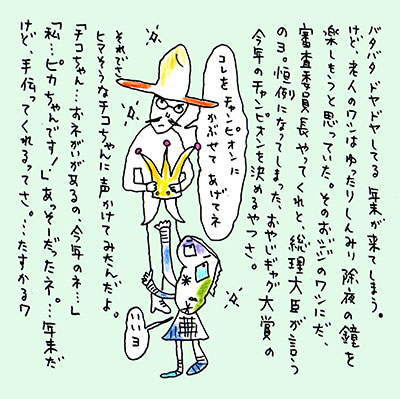 バタバタ ドヤドヤしてる 年末が来てしまう。
けど、老人のワシはゆったりしんみり 除夜の鐘を
楽しもうと思っていた。そのおジジのワシにだ、
審査委員長やってくれと、総理大臣が言う
のヨ。恒例になってしまった、おやじギャグ大賞の
今年のチャンピオンを決めるやつさ。
コレを チャンピオンに
かぶせて あげてネ
いいヨ
それでさ、
ヒマそうなチコちゃんに声かけてみたんだよ。
「チコちゃん…おネがいがあるの、今年のネ…」
「私…ピカちゃんです!」あっそーだったネ。…年末だ
けど、手伝ってくれるってさ。…たすかるワ